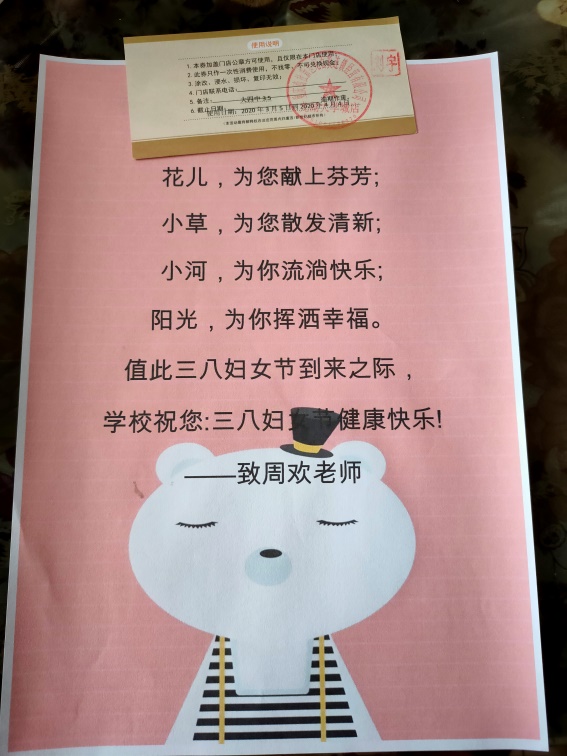 使用说明
1. 本券加盖门店公章方可使用，且仅限在本门店使用。
2. 此券只作一次性消费使用，不找零、不可兑换现金。
3. 涂改、浸水、损坏、复印无效。
4. 门店联系电话:
5. 备注:
6. 截止日期:
使用日期: 2020年3月5日
花儿，为您献上芬芳;
小草，为您散发清新;
小河，为你流淌快乐;
阳光，为你挥洒幸福。
值此三八妇女节到来之际，
学校祝您:三八妇女节健康快乐!
——致周欢老师